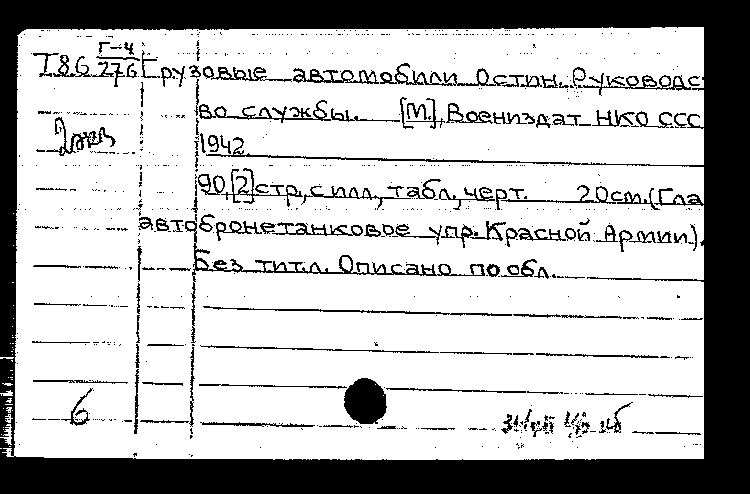 Т86 Г-4/276 Грузовые автомобили Остин. Руководс
во службы. [М.], Воениздат НКО ССС
2 экз
1942.
90,[2]стр,силл.,табл,черт. 20см.(Гла
автобронетанковое упр. Красной Армии).
Без тит.л. Описано по обл.
6